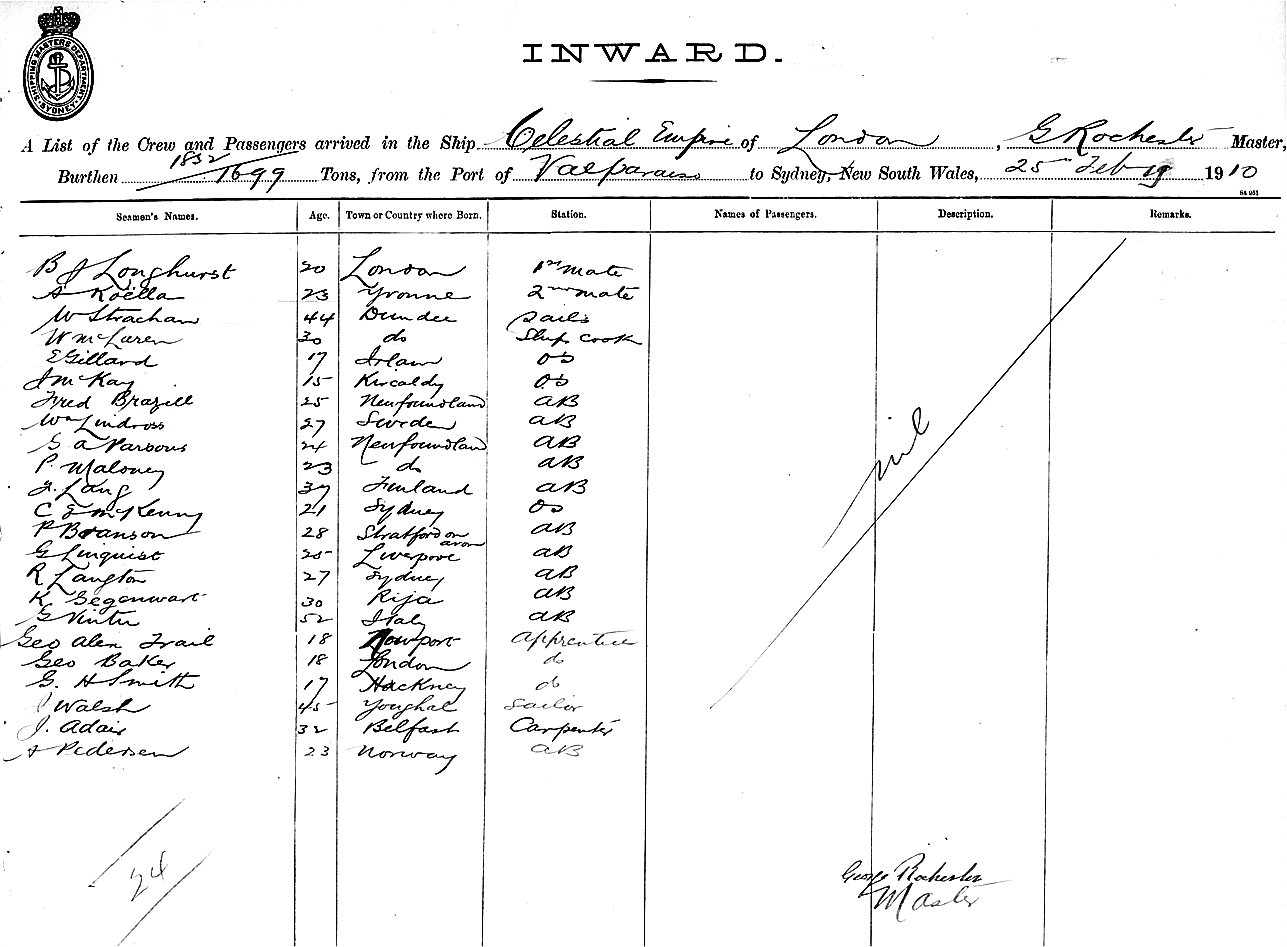 SHIPPING MASTERS DEPARTMENT
SYDNEY
INWARD.
A List of the Crew and Passengers arrived in the Ship Celestial Empire of London, G Rochester Master,
Burthen 1832/1699 Tons, from the Port of Valparaiso to Sydney, New South Wales, 25 Feb 1910
Seamen's Names. Age. Town or Country where Born. Station. Names of Passengers. Description. Remarks.
B J Longhurst 20 London 1st Mate
A Koëlla 23 Yvonne 2nd Mate
W Strachan 44 Dundee Sails
W McLaren 30 do Ship Cook
E Gillard 17 OS
J McKay 15 Kircaldy OS
Fred Brazill 25 Newfoundland AB
Wm Lindross 27 Sweden AB
G A Parsons 24 Newfoundland AB
P. Maloney 23 do AB
J. Lang 37 Finland AB
C E McKenny 21 Sydney OS
P Branson 28 Stratford on avon AB
G Linquist 25 Liverpool AB
R Langton 27 Sydney AB
K Gegenwart 30 Rija AB
G 52 Italy AB
Geo Alen Trail 18 Newport Apprentice
Geo Baker 18 London do
G. H Smith 17 Hackney do
J Walsh 45 Youghal Sailor
J. Adair 32 Belfast Carpenter
A Pedersen 23 Norway AB
nil
24
George Rochester
Master